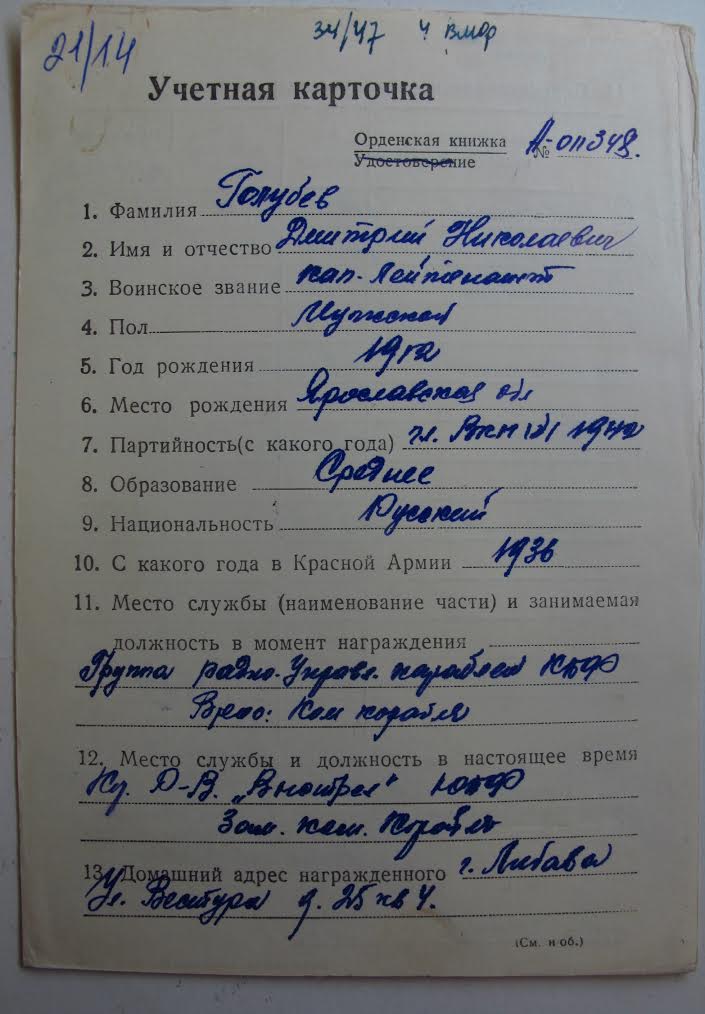 21/14
34/47 4 ВМОР
Учетная карточка
Орденская книжка
Удостоверение
№ А-0П348.
1. Фамилия Голубев
2. Имя и отчество Дмитрий Николаевич
3. Воинское звание кап-Лейтенант
4. Пол Мужской
5. Год рождения 1912
6. Место рождения Ярославская обл
7. Партийность(с какого года) чл. ВКП(б) 1942
8. Образование Среднее
9. Национальность Русский
10. С какого года в Красной Армии 1936
11. Место службы (наименование части) и занимаемая
должность в момент награждения
Группа радио-Управл. кораблей КБФ
Врео: Ком корабля
12. Место службы и должность в настоящее время
"Выстрел" ЮБФ
Зам. ком. Корабля
13. Домашний адрес награжденного г. Либава
Ул. д. 25 кв 4.
(См. н об.)